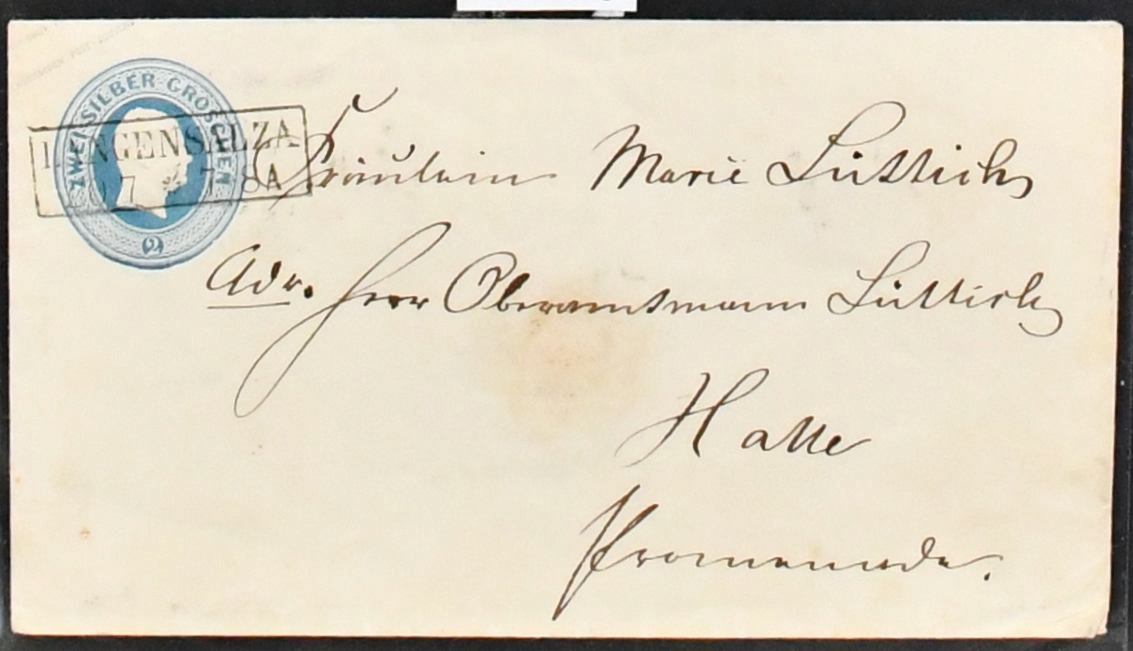 ZWEI SILBER GROSCHEN
2
LANGENSALZA
Fräulein Marie Lüttich
Adr. Herr Oberamtmann Lüttich
Halle
Promenade.